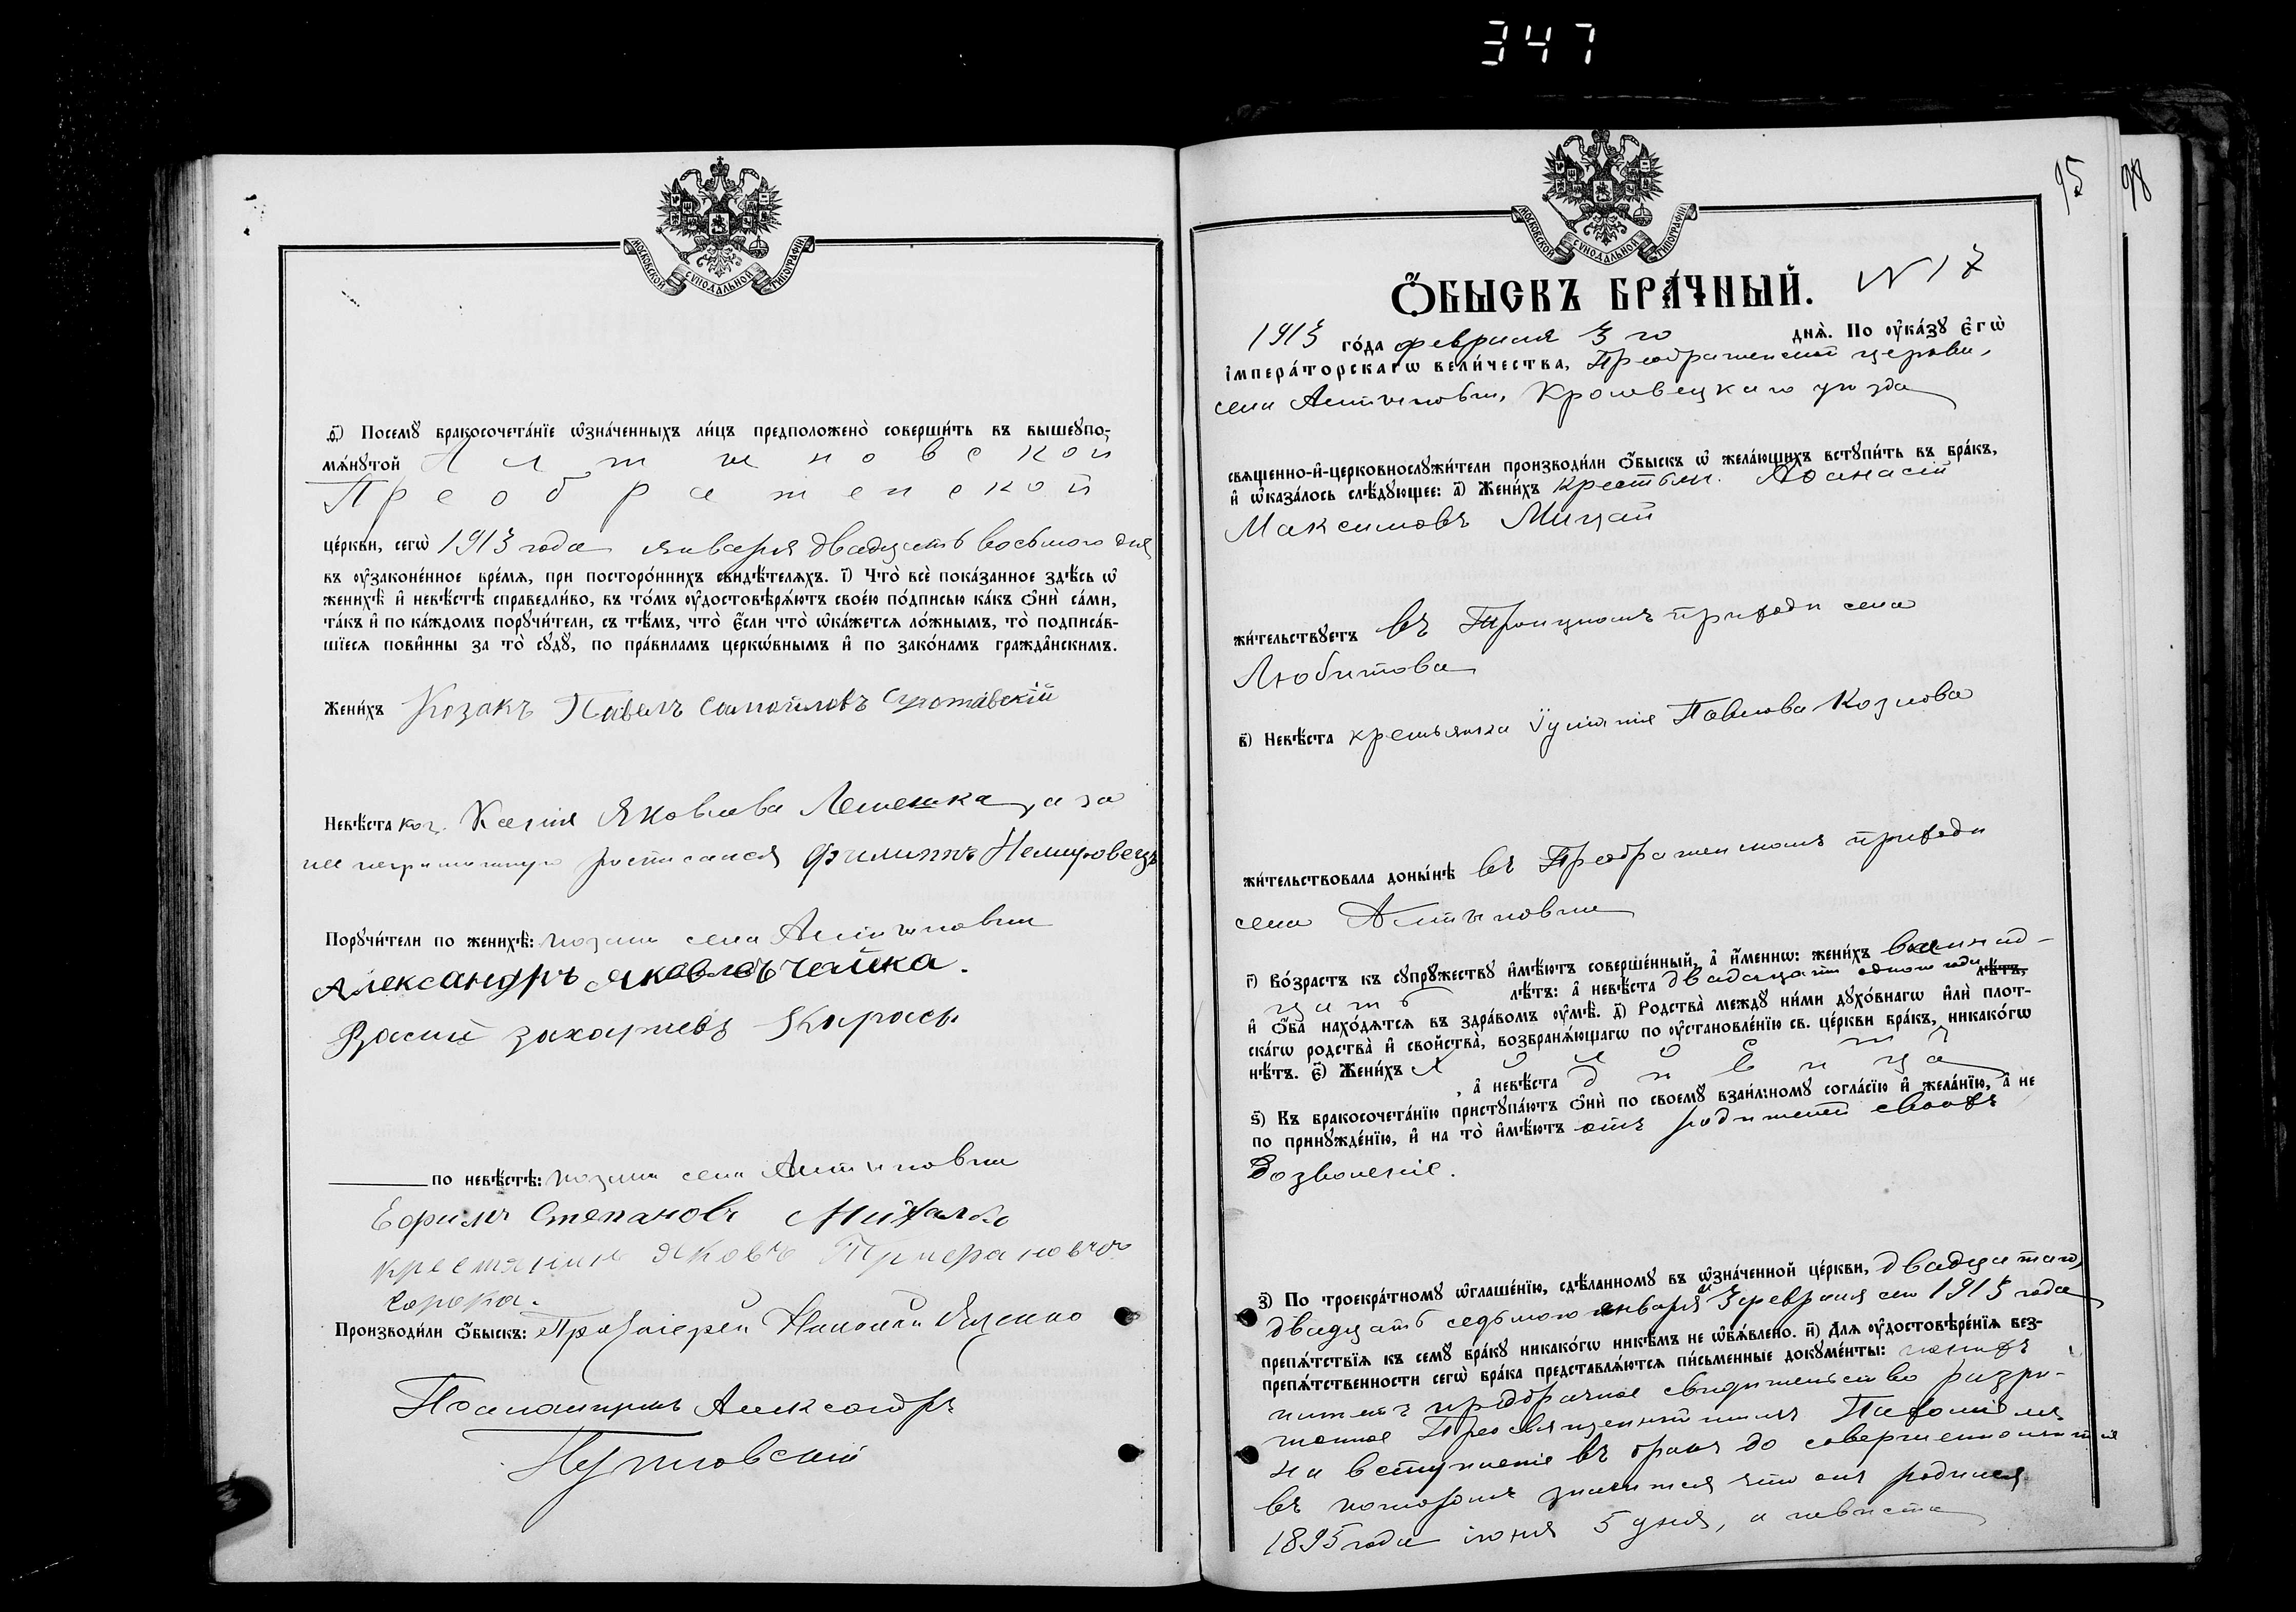 347
МОСКОВСКОЙ СѴНОДАЛЬНОЙ ТИПОГРАФІИ
ѳ҃) Посемꙋ̀ бракосочета́нїе ѡ҆зна́ченныхъ ли́цъ предположено̀ соверши́ть въ вышеꙋпо-
мѧ́нꙋтой Алтыновской
Преображенской
це́ркви, сегѡ̀ 1913 года января двадцать восьмого дня
въ ᲂу҆законе́нное вре́мѧ, при посторо́ннихъ свидѣ́телѧхъ. і҃) Что̀ всѐ пока́занное здѣ́сь ѡ҆
женихѣ̀ и҆ невѣ́стѣ справедли́во, въ то́мъ ᲂу҆достовѣрѧ́ютъ свое́ю по́дписью ка́къ ѻ҆нѝ са́ми,
та́къ и҆ по ка́ждомъ порꙋчи́тели, съ тѣ́мъ, что̀ є҆́сли что̀ ѡ҆ка́жетсѧ ло́жнымъ, то̀ подписа́в-
шїесѧ пови́нны за то̀ сꙋдꙋ̀, по пра́виламъ церкѡ́внымъ и҆ по зако́намъ гражда́нскимъ.
Жени́хъ Козакъ Павелъ Самойловъ
Невѣ́ста коз. Яковлева а за
нее неграмотную росписался Филиппъ
Порꙋчи́тели по женихѣ̀: козаки села Алтыновки
Александръ Яковлевъ Чайка.
захариевъ Карась
по невѣ́стѣ: козаки села Алтыновки
Ефимъ Степановъ Михалко
крестянинъ Яковъ
Сорока.
Производи́ли ѻ҆́быскъ: Протоіерей Николай Яценко
Псаломщикъ Александръ
МОСКОВСКОЙ СѴНОДАЛЬНОЙ ТИПОГРАФІИ
95 98
Ѻ҆БЫСКЪ БРА́ЧНЫЙ. N 17
1913 го́да февраля 3 го днѧ̀. По ᲂу҆ка́зꙋ Є҆гѡ̀
і҆мпера́торскагѡ вели́чества, Преображенской церкви,
села Алтыновки, Кролевецкаго уѣзда
свѧщенно-и҆-церковнослꙋжи́тели производи́ли ѻ҆́быскъ ѡ҆ жела́ющихъ встꙋпи́ть въ бра́къ,
и҆ ѡ҆каза́лось слѣ́дꙋющее: а҃) Жени́хъ крестьян. Афанасій
Максимовъ Мицай
жи́тельствꙋетъ въ Троицкомъ приходѣ села
Любитова
в҃) Невѣ́ста крестьянка Павлова Козлова
жи́тельствовала доны́нѣ въ Преображенскомъ приходѣ
села Алтыновки
г҃) Во́зрастъ къ сꙋпрꙋ́жествꙋ и҆мѣ́ютъ соверше́нный, а҆ и҆́меннѡ: жени́хъ
лѣ́тъ: а҆ невѣ́ста двадцати одного года лѣ́тъ,
и҆ ѻ҆́ба нахо́дѧтсѧ въ здра́вомъ ᲂу҆мѣ̀. д҃) Родства̀ междꙋ ни́ми дꙋхо́внагѡ и҆лѝ плот-
ска́гѡ родства̀ и҆ свойства̀, возбранѧ́ющагѡ по ᲂу҆становле́нїю св. це́ркви бра́къ, никако́гѡ
нѣ́тъ. є҃) Жени́хъ холостъ
, а҆ невѣ́ста дѣвица
ѕ҃) Къ бракосочета́нїю пристꙋпа́ютъ ѻ҆нѝ по своемꙋ̀ взаи́мномꙋ согла́сїю и҆ жела́нїю, а҆ не
по принꙋжде́нїю, и҆ на то̀ и҆мѣ́ютъ отъ родителей своихъ
дозволеніе.
з҃) По троекра́тномꙋ ѡ҆глаше́нїю, сдѣ́ланномꙋ въ ѡ҆зна́ченной це́ркви, двадцатаго,
двадцать седьмого января и 3 февраля сего 1913 года
препѧ́тствїѧ къ семꙋ̀ бра́кꙋ никако́гѡ никѣ́мъ не ѡ҆б̾ѧ́влено. и҃) Длѧ ᲂу҆достовѣре́нїѧ без-
препѧ́тственности сегѡ̀ бра́ка представлѧ́ютсѧ пи́сьменные докꙋме́нты: женихъ
предбрачное свидѣтельство разрѣ-
шенное Преосвященнѣйшимъ
на вступленіе въ бракъ до совершеннолѣтія
въ которомъ значится что онъ родился
1895 года іюня 5 дня, а невѣста